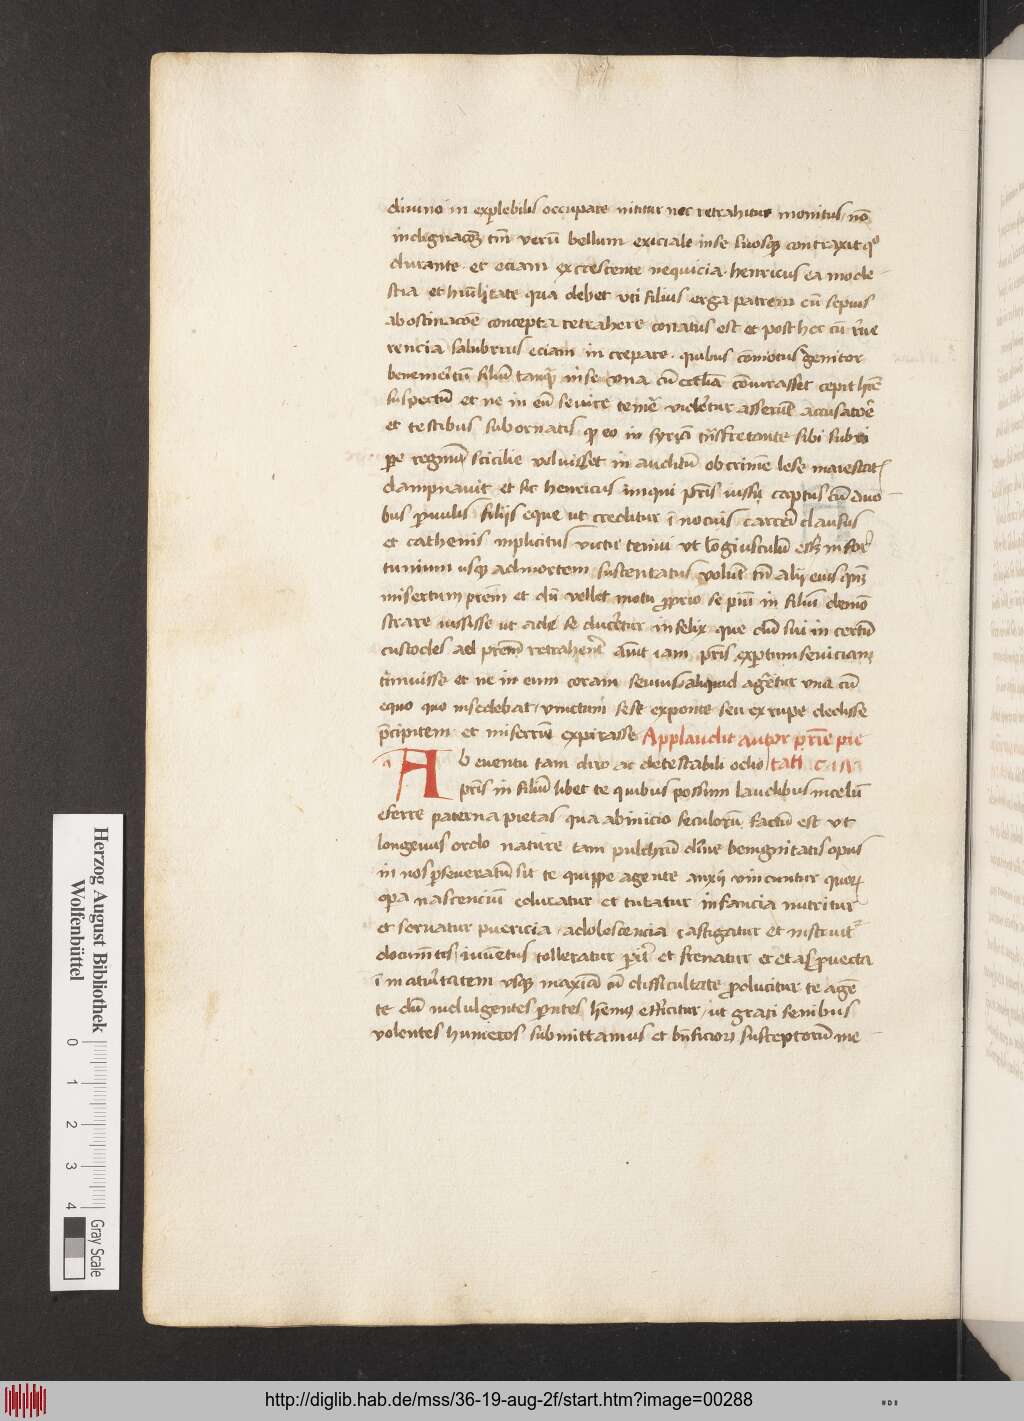 diuino in explebilis occupare nititur nec retrahitur monitus nō
indignacōȝ tm̄ verū bellum exiciale inse suosqȝ contraxit qº
durante et eciam excrescente nequicia henricus ea mode
stia et hūilitate qua debet vti filius erga patrem cū sepius
abostinacōe concepta retrahere conatus est et post hec cū r̄ue
rencia salubrius eciam in crepare quibus cōmotus genitor
benemeritū filiū tanqȝ inse vna cū ecclīa cōiurasset cepit h̄re
suspectū et ne in eū seuire temē videretur asserūt accusatoē
et testibus subornatis qȝ eo in syriā tn̄sfretante sibi subri
pe regnū scicilie voluisset in auditū ob crimē lese maiestat
dampnauit et sic henricus iniqui pr̄is iussu captus cū duo
bus paruulis filijs eque ut creditur īnocuis carceri clausus
et cathenis inplicitus victu tenui vt lōgiusculū esset infor
tunium usqȝ admortem sustentatus volūt tn̄ alij eius
misertum prēm et dū vellet motu proprio se piū in filiū demō
strare iussisse ut ad se duceretur infelix que dū sui in certū
custodes ad prēm retraherent auit iam pr̄is expertum seuiciam
timuisse et ne in eum coram seuius aliquid ageretur vna cū
equo quo insedebat vinctum sese exponte seu exrupe dedisse
precipitem et miserrūe expirasse Applaudit autor prīe pie
Ab euentu tam diro ac detestabili odio tati
pr̄is in filiū libet te quibus possum laudibus incelū
eferre paterna pietas qua abinicio seculorū factū est vt
longeuus ordo nature tam pulchrū diuine benignitatis opus
in nos perseueratū sit te quippe agente anxij vincuntur quorȝ
opa nascenciū educatur et tutatur infancia nutritur
et seruatur puericia adoloscencia castigatur et instruit
documētis iuuētus tolleratur et frenatur et etas prouecta
ī maturitatem vsqȝ maxīa cū dissicultate producitur te agē
te dū indulgentes parentes efficitur ut grati senibus
volentes humeros submittamus et bn̄ficiorȝ susceptorū me
Herzog August Bibliothek
Wolfenbüttel
0 1 2 3 4
Gray Scale
http://diglib.hab.de/mss/36-19-aug-2f/start.htm?image=00288